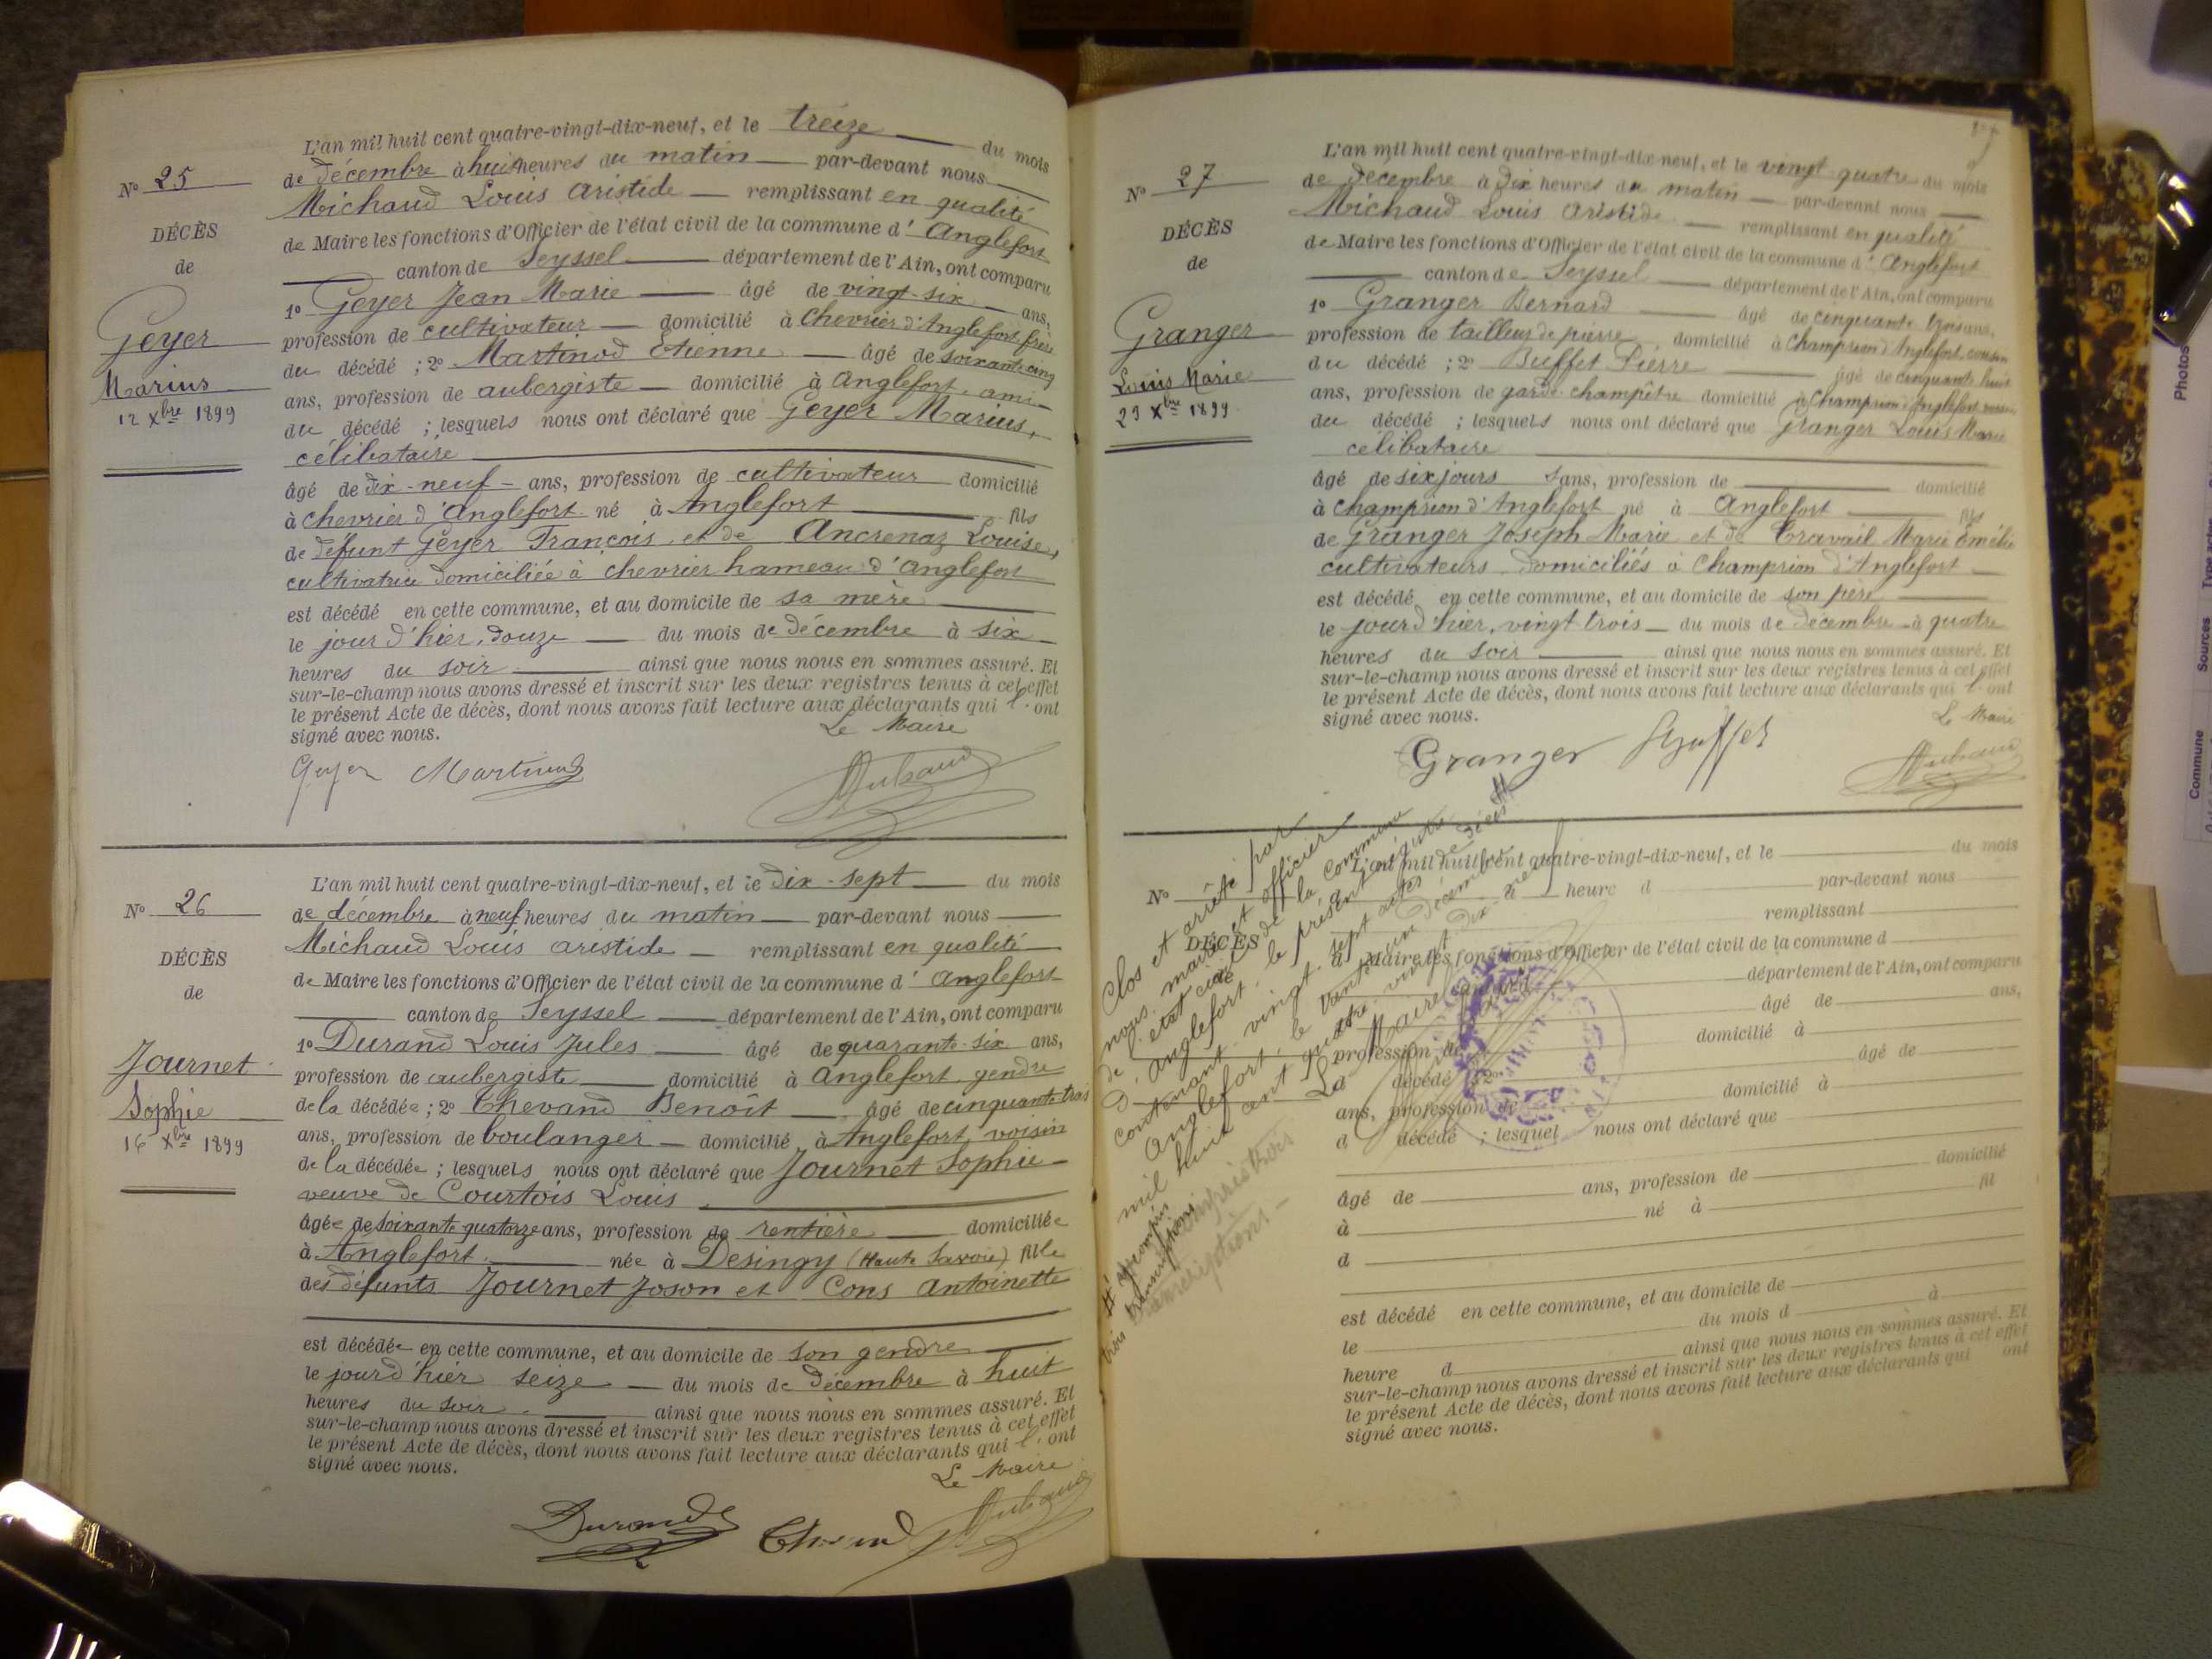 L'an mil huit cent quatre-vingt-dix-neuf, et le treize du mois
de décembre à huit heures du matin par-devant nous
Michaud Louis Aristide remplissant en qualité
de Maire les fonctions d'Officier de l'état civil de la commune d' Anglefort
canton de Seyssel département de l'Ain, ont comparu
1º Geyer Jean Marie âgé de vingt-six ans,
profession de cultivateur domicilié à Chevrier d'Anglefort frère
du décédé ; 2º Martinod Etienne âgé de soixante cinq
ans, profession de aubergiste domicilié à Anglefort, ami
du décédé ; lesquels nous ont déclaré que Geyer Marius,
célibataire
âgé de dix-neuf ans, profession de cultivateur domicilié
à chevrier d'Anglefort né à Anglefort fils
de défunt Geyer François et de Ancrenaz Louise,
cultivatrice domiciliée à chevrier hameau d'Anglefort
est décédé en cette commune, et au domicile de sa mère
le jour d'hier, douze du mois de décembre à six
heures du soir ainsi que nous nous en sommes assuré. Et
sur-le-champ nous avons dressé et inscrit sur les deux registres tenus à cet effet
le présent Acte de décès, dont nous avons fait lecture aux déclarants qui l'ont
signé avec nous.
Le Maire
Geyer Martinod
Nº 25
DÉCÈS
de
Geyer
Marius
12 Xbre 1899
L'an mil huit cent quatre-vingt-dix-neuf, et le dix-sept du mois
de décembre à neuf heures du matin par-devant nous
Michaud Louis aristide remplissant en qualité
de Maire les fonctions d'Officier de l'état civil de la commune d' Anglefort
canton de Seyssel département de l'Ain, ont comparu
1º Durand Louis Jules âgé de quarante-six ans,
profession de aubergiste domicilié à Anglefort, gendre
de la décédée ; 2º Thevand Benoît âgé de cinquante trois
ans, profession de boulanger domicilié à Anglefort, voisin
de la décédée ; lesquels nous ont déclaré que Journet Sophie
veuve de Courtois Louis
âgée de soixante quatorze ans, profession de rentière domiciliée
à Anglefort née à Desingy (Haute Savoie) fille
des défunts Journet Joson et Cons Antoinette
est décédée en cette commune, et au domicile de son gendre
le jour d'hier seize du mois de décembre à huit
heures du soir ainsi que nous nous en sommes assuré. Et
sur-le-champ nous avons dressé et inscrit sur les deux registres tenus à cet effet
le présent Acte de décès, dont nous avons fait lecture aux déclarants qui l'ont
signé avec nous.
Le Maire
Durand
Nº 26
DÉCÈS
de
Journet
Sophie
16 Xbre 1899
L'an mil huit cent quatre-vingt-dix-neuf, et le vingt-quatre du mois
de décembre à dix heures du matin par-devant nous
Michaud Louis Aristide remplissant en qualité
de Maire les fonctions d'Officier de l'état civil de la commune d' Anglefort
canton de Seyssel département de l'Ain, ont comparu
1º Granger Bernard âgé de cinquante trois ans,
profession de tailleur de pierre domicilié à Champrion d'Anglefort, cousin
du décédé ; 2º Buffet Pierre âgé de cinquante huit
ans, profession de garde champêtre domicilié à Champrion d'Anglefort voisin
du décédé ; lesquels nous ont déclaré que Granger Louis Marie
célibataire
âgé de six jours ans, profession de domicilié
à Champrion d'Anglefort né à Anglefort fils
de Granger Joseph Marie et de Travail Marie Emélie
cultivateurs domiciliés à Champrion d'Anglefort
est décédé en cette commune, et au domicile de son père
le jour d'hier, vingt trois du mois de décembre à quatre
heures du soir ainsi que nous nous en sommes assuré. Et
sur-le-champ nous avons dressé et inscrit sur les deux registres tenus à cet effet
le présent Acte de décès, dont nous avons fait lecture aux déclarants qui l'ont
signé avec nous.
Le Maire
Granger Buffet
Nº 27
DÉCÈS
de
Granger
Louis Marie
23 Xbre 1899
L'an mil huit cent quatre-vingt-dix-neuf, et le du mois
d à heure d par-devant nous
remplissant
d Maire les fonctions d'Officier de l'état civil de la commune d
canton d département de l'Ain, ont comparu
âgé de ans,
profession de domicilié à
d décédé ; 2º âgé de
ans, profession de domicilié à
d décédé ; lesquel nous ont déclaré que
âgé de ans, profession de domicilié
à né à fil
d
est décédé en cette commune, et au domicile de
le du mois d à
heure d ainsi que nous nous en sommes assuré. Et
sur-le-champ nous avons dressé et inscrit sur les deux registres tenus à cet effet
le présent Acte de décès, dont nous avons fait lecture aux déclarants qui ont
signé avec nous.
Nº
DÉCÈS
Clos et arrêté par
nous, maire et officier
de l'état civil de la commune
d'Anglefort, le présent registre
contenant vingt-sept actes de décès #
Anglefort, le trente un décembre
mil huit cent quatre-vingt-dix-neuf
Le Maire
# y compris
trois transcriptions
Photos
Type acte
Sources
Commune